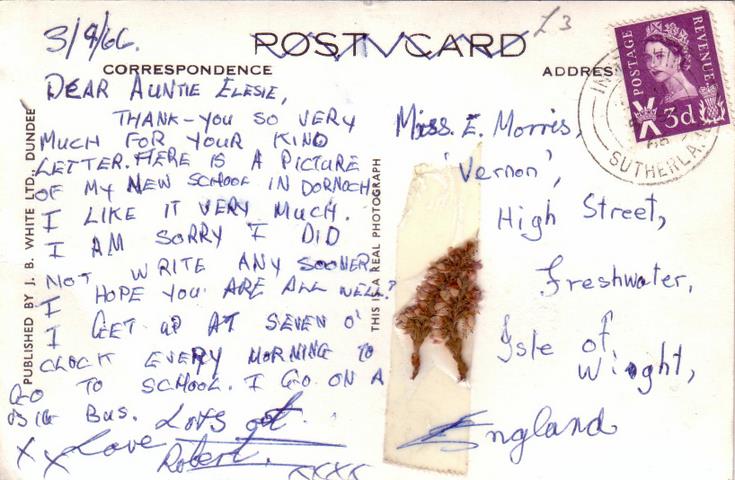 3/9/66.
£3
POST CARD
CORRESPONDENCE
ADDRES
DEAR AUNTIE ELESIE,
THANK-YOU SO VERY
MUCH FOR YOUR KIND
LETTER. HERE IS A PICTURE
OF MY NEW SCHOOL IN DORNOCH
I LIKE IT VERY MUCH.
I AM SORRY I DID
NOT WRITE ANY SOONER
I HOPE YOU ARE ALL WELL?
I GET UP AT SEVEN O'
CLOCK EVERY MORNING TO
GO TO SCHOOL. I GO ON A
BIG BUS. Lots of
XX Love
Robert.
XXXX
PUBLISHED BY J. B. WHITE LTD., DUNDEE
THIS IS A REAL PHOTOGRAPH
Miss. E. Morris,
'Vernon',
High Street,
Freshwater,
Isle of
Wight,
England
POSTAGE
REVENUE
3d
SUTHERLA